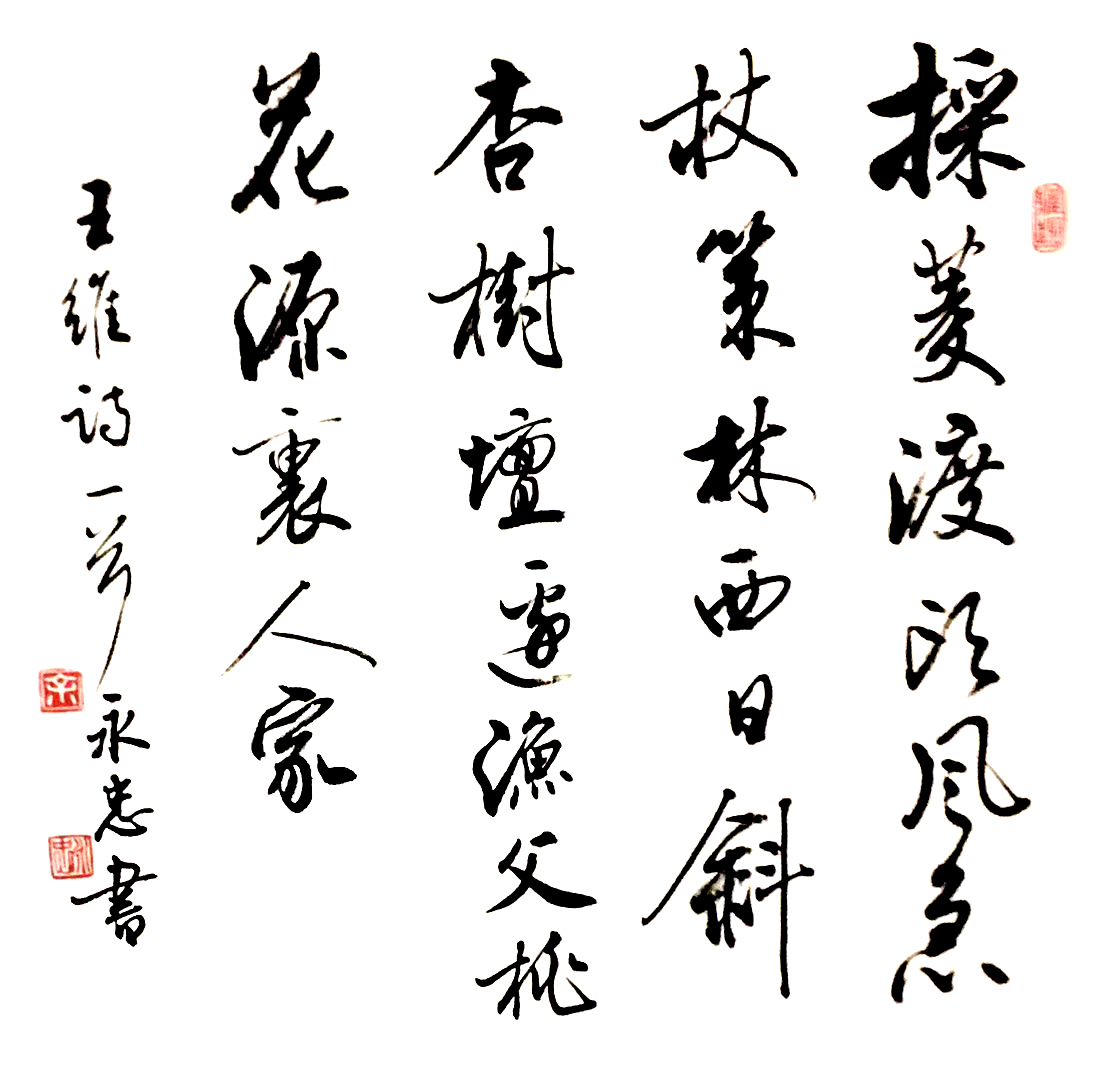 採菱渡頭風急
杖策林西日斜
杏樹壇邊漁父桃
花源裏人家
王維詩一首永忠書